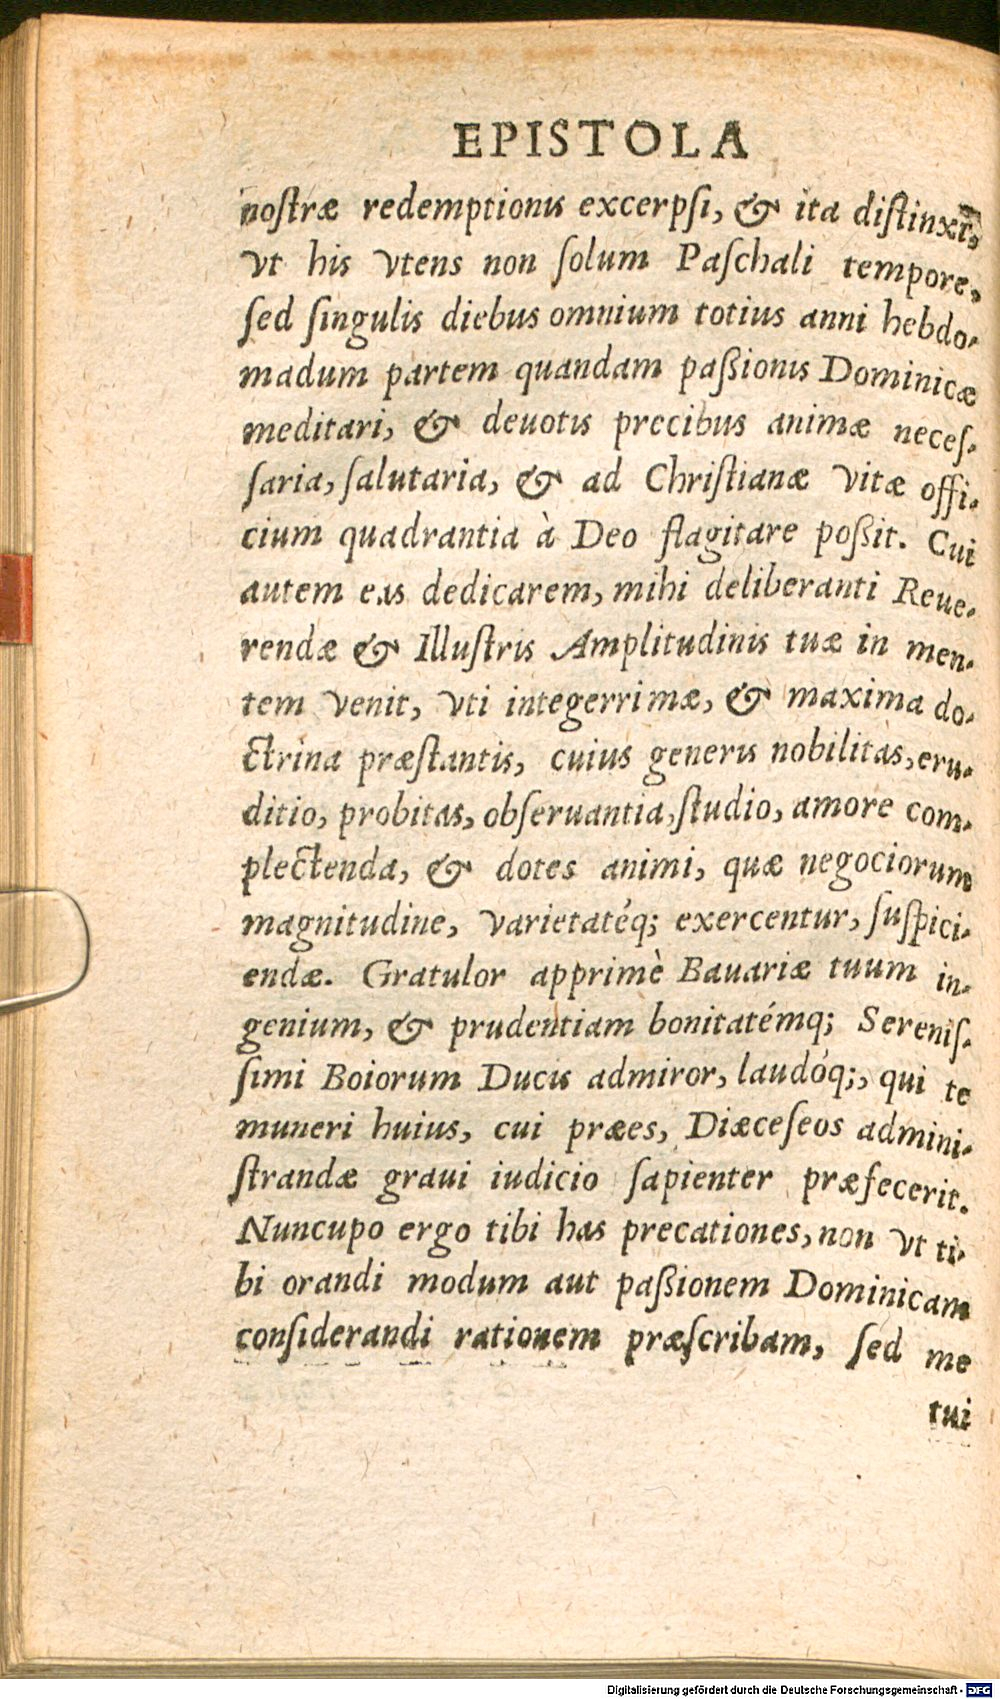 EPISTOLA
noſtræ redemptionis excerpſi, & ita diſtinxi,
vt his vtens non ſolum Paſchali tempore,
ſed ſingulis diebus omnium totius anni hebdo-
madum partem quandam paßionis Dominicæ
meditari, & deuotis precibus animæ neceſ-
ſaria, ſalutaria, & ad Chriſtianæ vitæ offi-
cium quadrantia à Deo flagitare poßit. Cui
autem eas dedicarem, mihi deliberanti Reue-
rendæ & Illuſtris Amplitudinis tuæ in men-
tem venit, vti integerrimæ, & maxima do-
ctrina præſtantis, cuius generis nobilitas, eru-
ditio, probitas, obſeruantia, ſtudio, amore com-
plectenda, & dotes animi, quæ negociorum
magnitudine, varietatéq; exercentur, ſuſpici-
endæ. Gratulor apprimè Bauariæ tuum in-
genium, & prudentiam bonitatémq; Sereniſ-
ſimi Boiorum Ducis admiror, laudóq;, qui te
muneri huius, cui præes, Diæceſeos admini-
ſtrandæ graui iudicio ſapienter præfecerit.
Nuncupo ergo tibi has precationes, non vt ti-
bi orandi modum aut paßionem Dominicam
conſiderandi rationem præſcribam, ſed me
tui
Digitalisierung gefördert durch die Deutsche Forschungsgemeinschaft - DFG